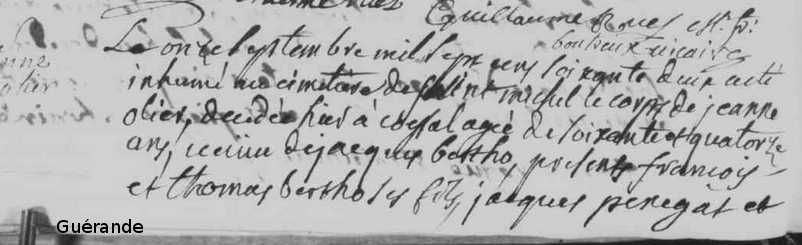 Guillaume
vicaire
Le onze Septembre mil Sept cens Soixante deux a été
inhumé au cimetière de Saint michel le corps de jeanne
olier, decedée hier à agée de Soixante et quatorze
ans, veuve de jacques bertho, presents francois
et thomas berthos ses fils, jacques penegat et
Guérande